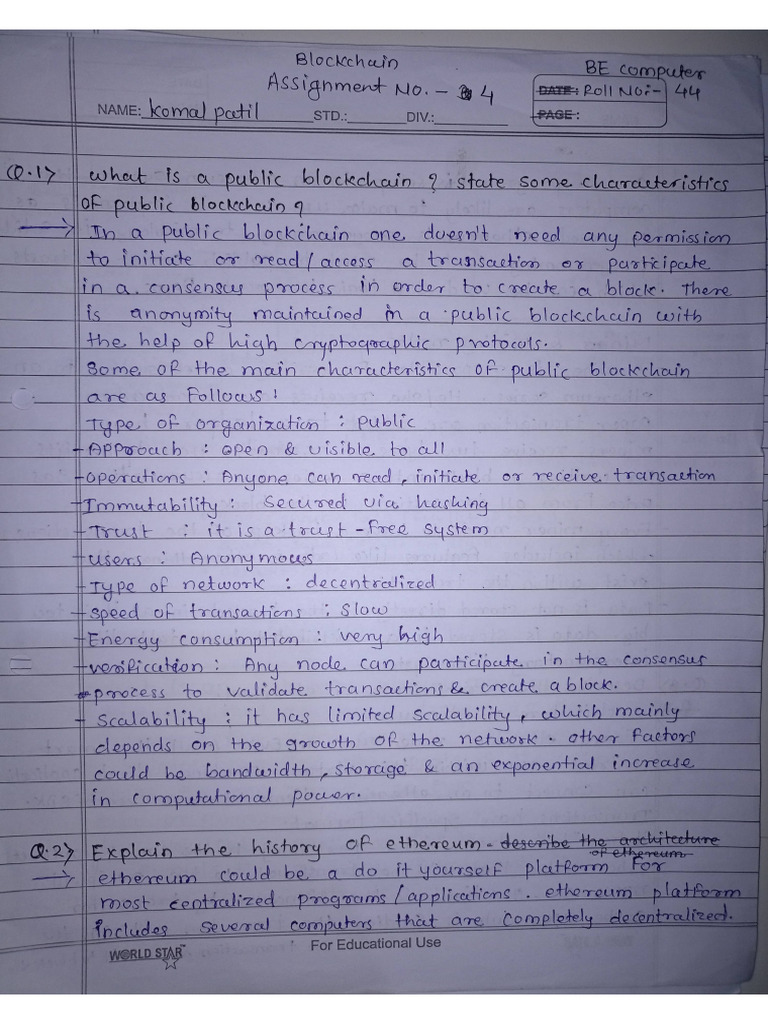 Blockchain
Assignment No. - 4
BE computer
DATE: Roll No:- 44
NAME: Komal patil STD.: DIV.:
PAGE:
Q.1> what is a public blockchain ? state some characteristics
of public blockchain ?
→ In a public blockchain one doesn't need any permission
to initiate or read/access a transaction or participate
in a consensus process in order to create a block. There
is anonymity maintained in a public blockchain with
the help of high cryptographic protocols.
Some of the main characteristics of public blockchain
are as follows:
Type of organization : public
- Approach : open & visible to all
- operations : Anyone can read, initiate or receive transaction
- Immutability : Secured via hashing
- Trust : it is a trust-free system
- users : Anonymous
- Type of network : decentralized
- speed of transactions : slow
- Energy consumption : very high
- verification : Any node can participate in the consensus
process to validate transactions & create a block.
- Scalability : it has limited scalability, which mainly
depends on the growth of the network. other factors
could be bandwidth, storage & an exponential increase
in computational power.
Q.2> Explain the history of ethereum. describe the architecture
of ethereum
→ ethereum could be a do it yourself platform for
most centralized programs/applications. ethereum platform
includes several computers that are completely decentralized.
WORLD STAR
For Educational Use